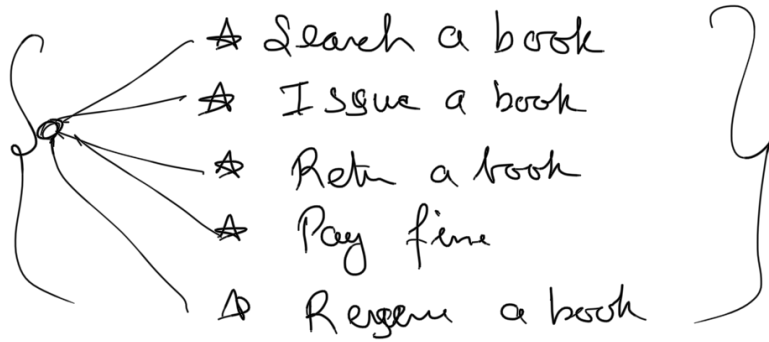 Search a book
Issue a book
Retn a book
Pay fine
a book